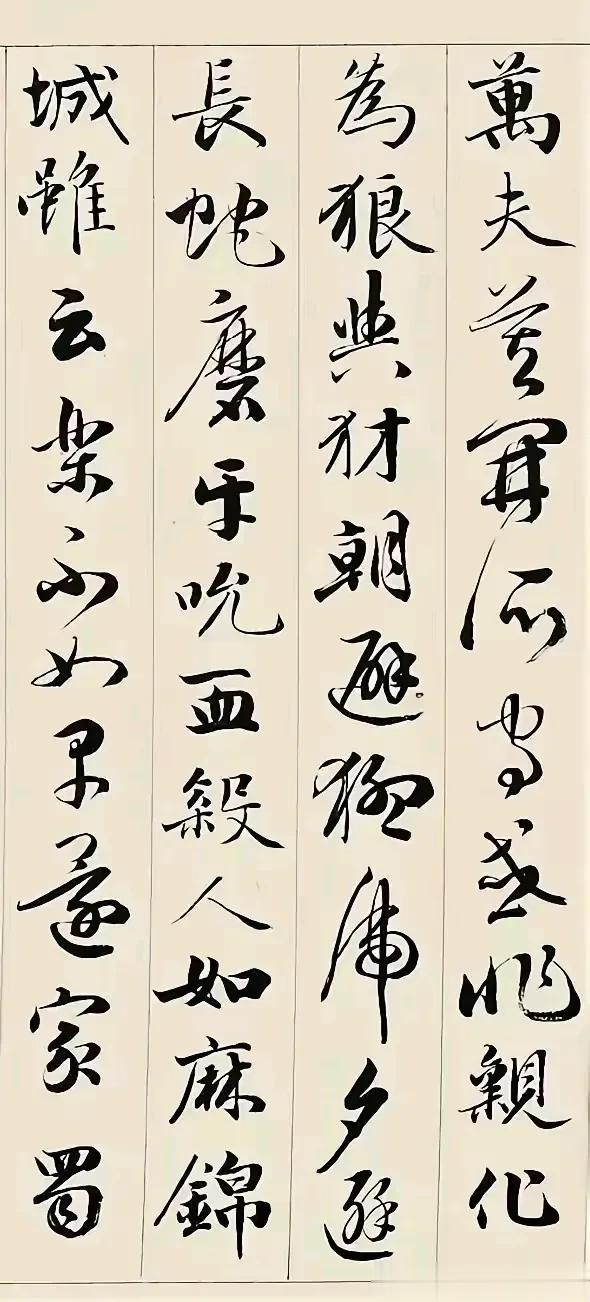 萬夫莫開所守或匪親化
為狼與犲朝避猛虎夕避
長蛇磨牙吮血殺人如麻錦
城雖云樂不如早還家蜀